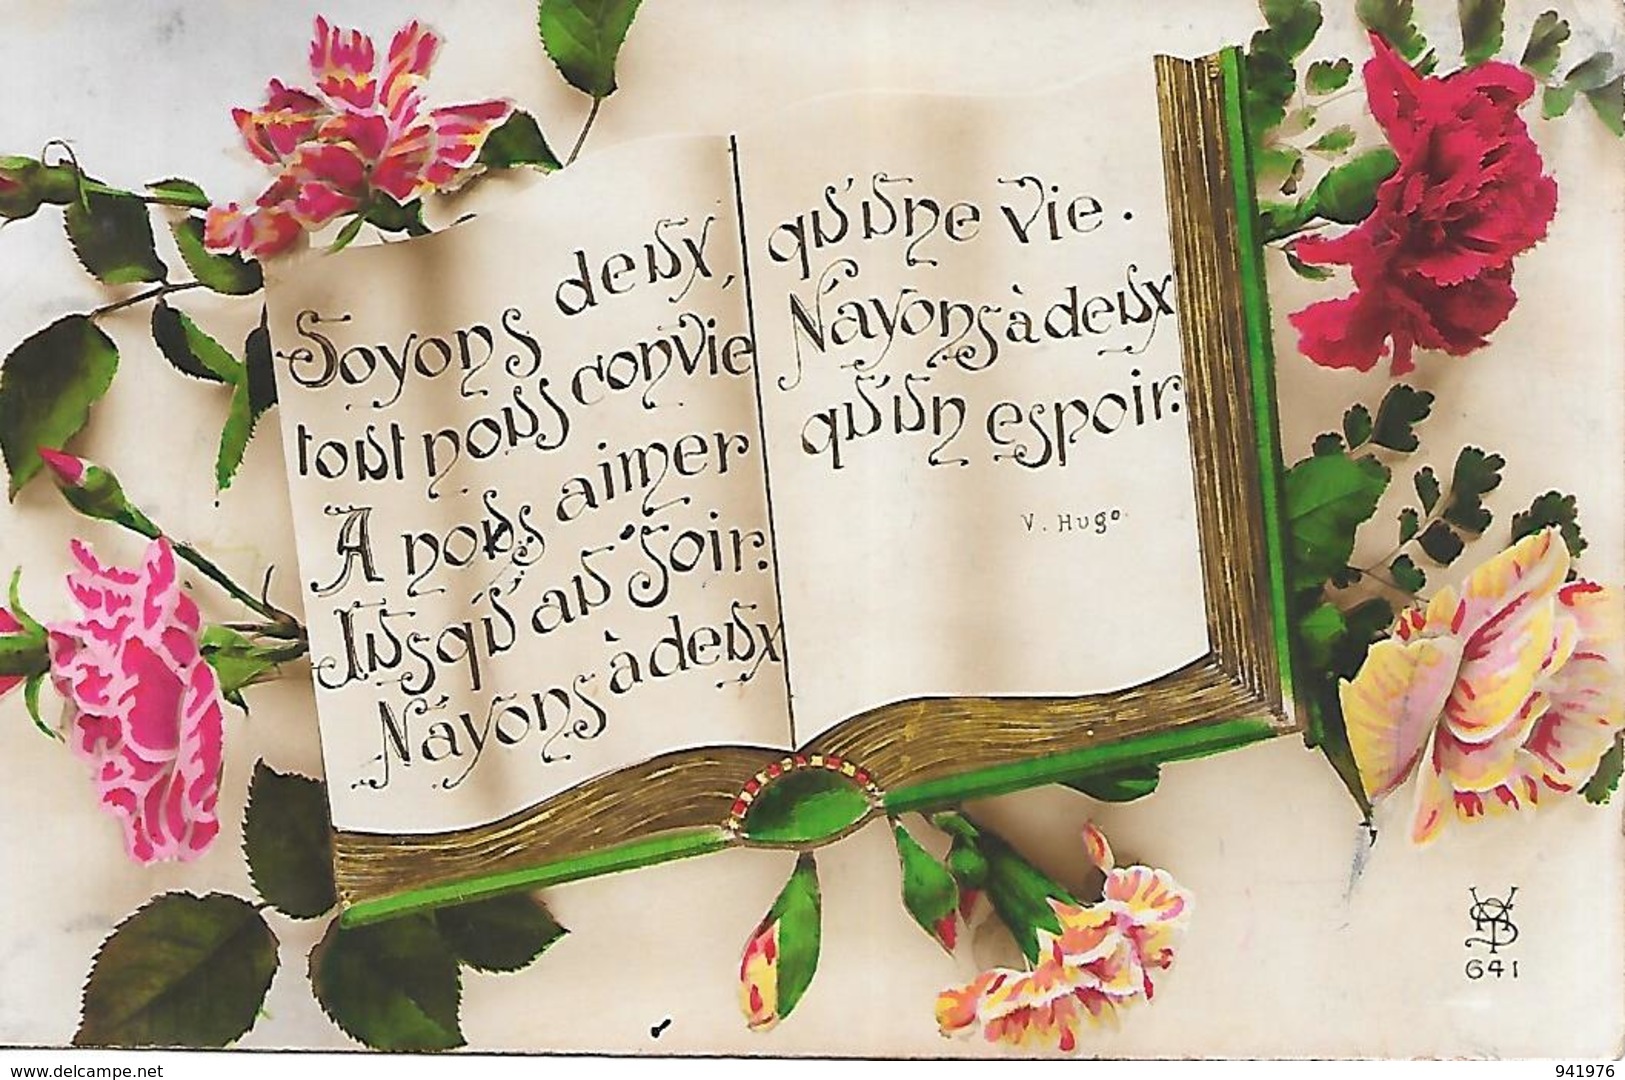 Soyons deux,
tout nous convie
A nous aimer
Jusqu'au Soir.
N'ayons à deux
qu'une Vie.
N'ayons à deux
qu'un espoir.
V. Hugo.
641
www.delcampe.net
941976